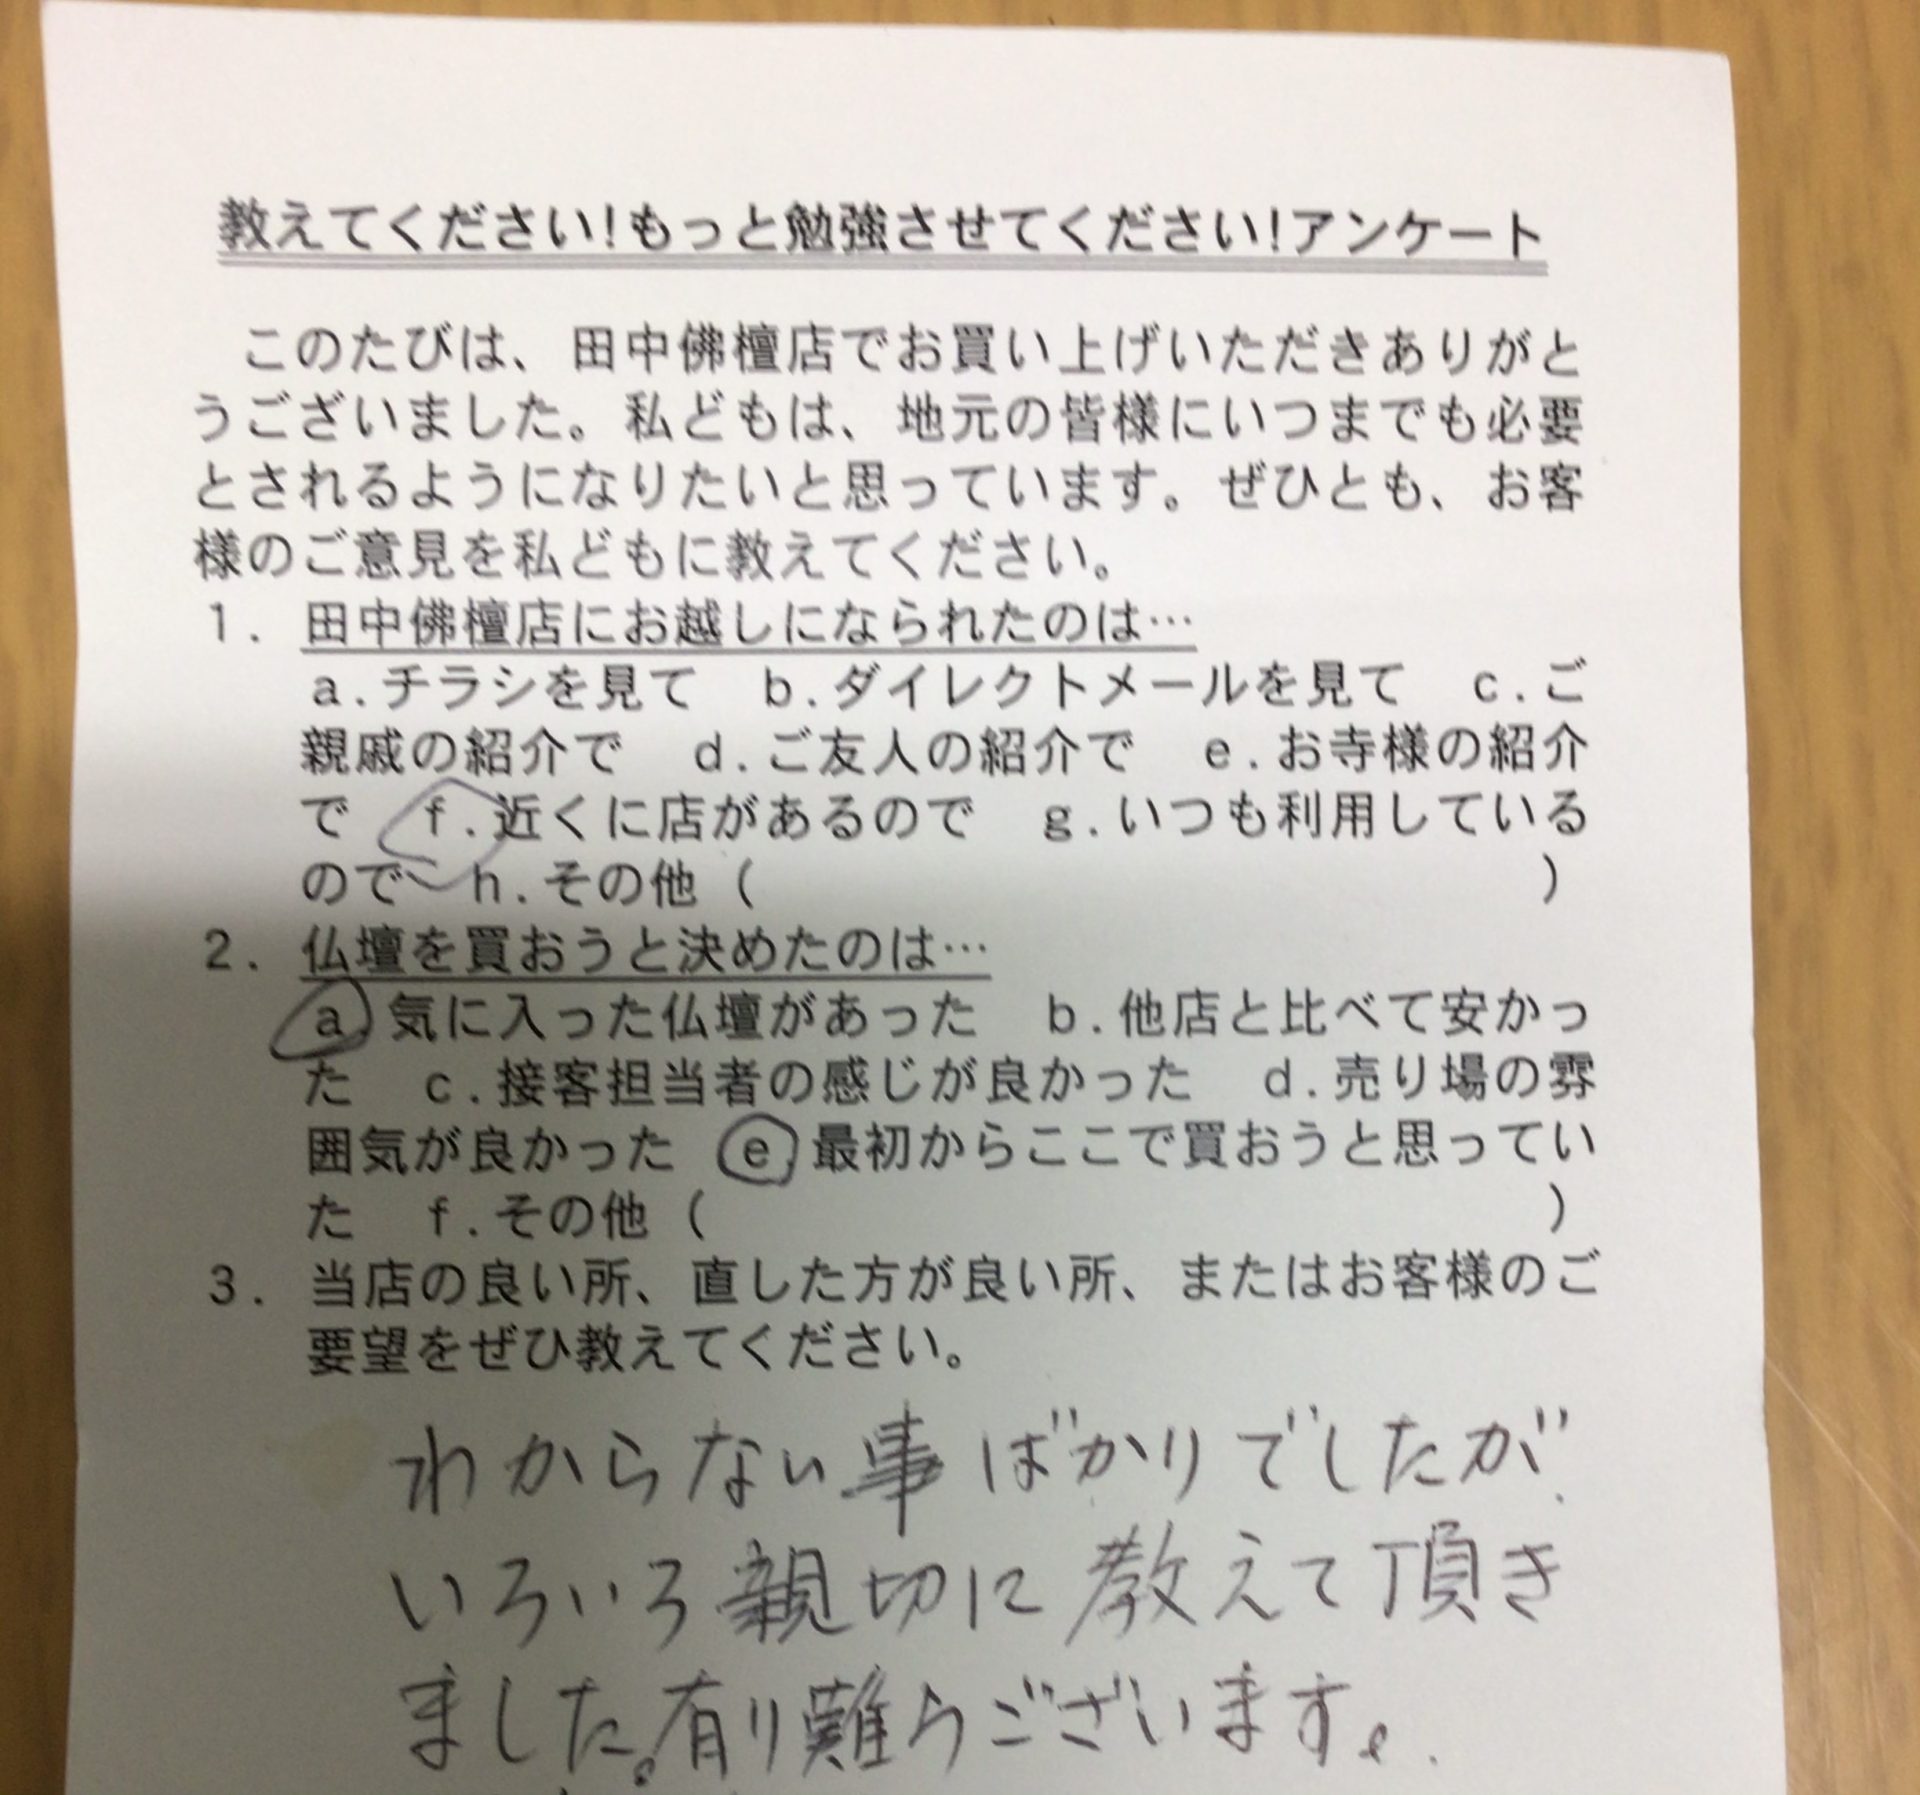 教えてください!もっと勉強させてください!アンケート
このたびは、田中佛檀店でお買い上げいただきありがと
うございました。私どもは、地元の皆様にいつまでも必要
とされるようになりたいと思っています。ぜひとも、お客
様のご意見を私どもに教えてください。
1. 田中佛檀店にお越しになられたのは…
a.チラシを見て b.ダイレクトメールを見て c.ご
親戚の紹介で d.ご友人の紹介で e.お寺様の紹介
で f.近くに店があるので g.いつも利用している
ので h.その他（ ）
2. 仏壇を買おうと決めたのは…
a.気に入った仏壇があった b.他店と比べて安かっ
た c.接客担当者の感じが良かった d.売り場の雰
囲気が良かった e.最初からここで買おうと思ってい
た f.その他（ ）
3. 当店の良い所、直した方が良い所、またはお客様のご
要望をぜひ教えてください。
わからない事ばかりでしたが、
いろいろ親切に教えて頂き
ました。有り難うございます。